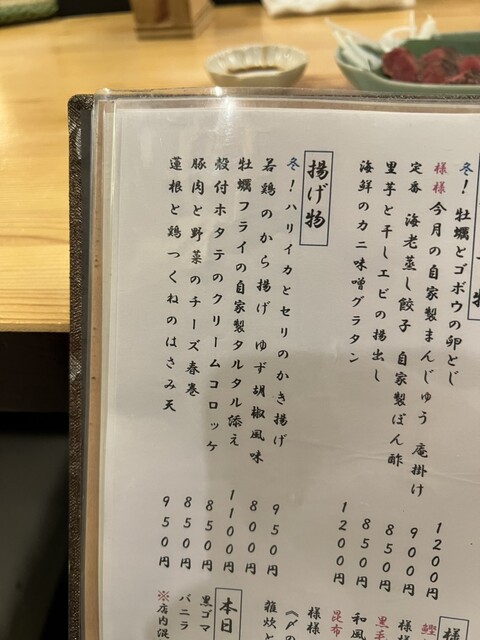 物
冬！牡蠣とゴボウの卵とじ 1200円
様様 今月の自家製まんじゅう 庵掛け 900円
定番 海老蒸し餃子 自家製ぽん酢 850円
里芋と干しエビの揚出し 850円
海鮮のカニ味噌グラタン 1200円
揚げ物
冬！ハリイカとセリのかき揚げ 950円
若鶏のから揚げ ゆず胡椒風味 800円
牡蠣フライの自家製タルタル添え 1100円
殻付ホタテのクリームコロッケ 850円
豚肉と野菜のチーズ春巻 850円
蓮根と鶏つくねのはさみ天 950円
様
鰹
様
黒毛
和風
昆布
様様
《〆の
雑炊と
本日
黒ゴマ
バニラ
※店内混